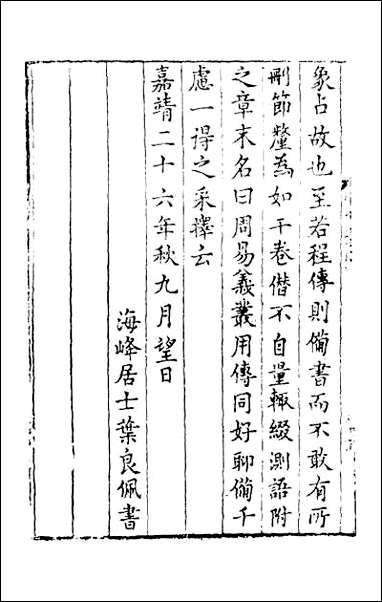 象占故也至若程傳則備書而不敢有所
刪節釐為如干卷僭不自量輒綴測語附
之章末名曰周易義叢用傳同好聊備千
慮一得之采擇云
嘉靖二十六年秋九月望日
海峰居士葉良佩書